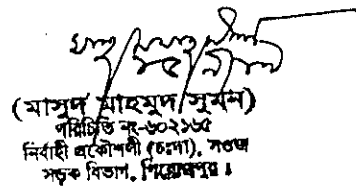 (মাসুদ মাহমুদ সুমন)
পরিচিতি নং-৬০২১৬৫
নির্বাহী প্রকৌশলী (চঃদা), সওজ
সড়ক বিভাগ, পিরোজপুর।